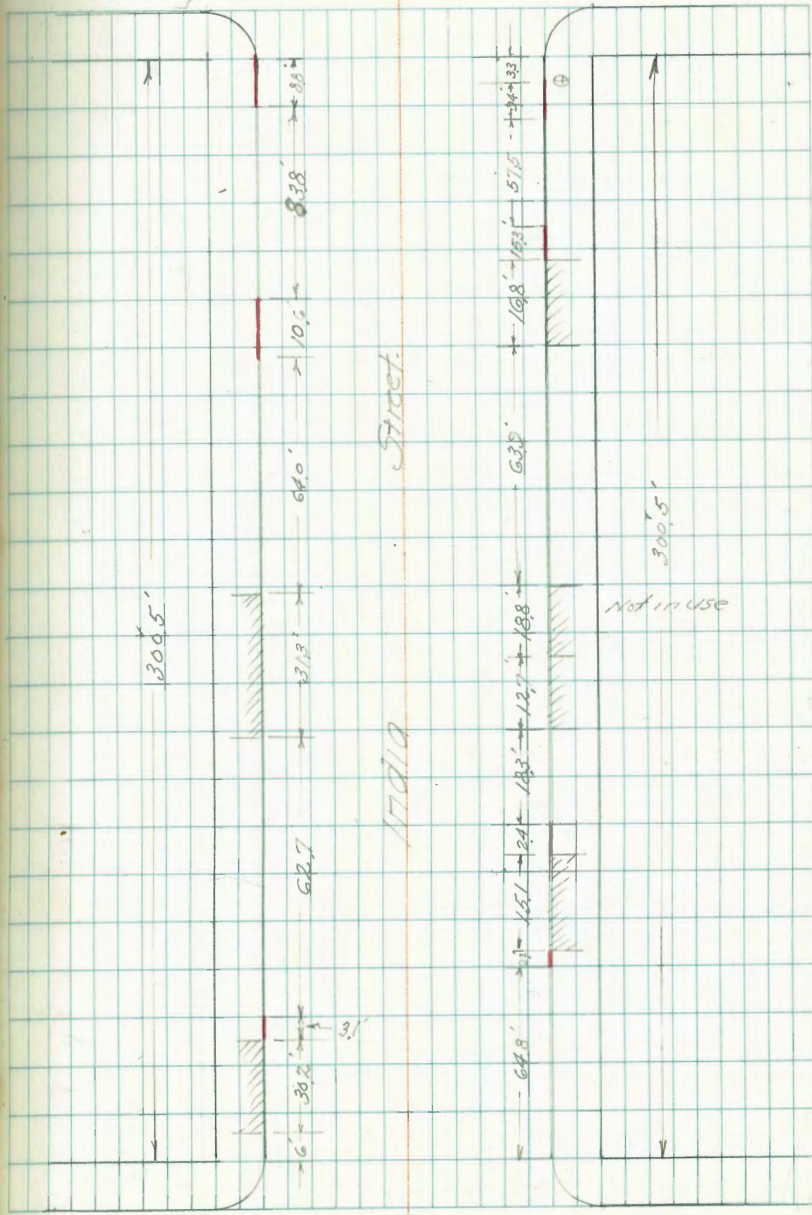 300.5'
8.8'
83.8'
10.6'
64.0'
31.3'
62.7
3.1'
30.2'
6'
India Street.
3.3'
57.5
15.3'
16.8'
63.9'
18.8'
12.7'
18.3'
2.4'
15.1
64.8'
300.5'
Not in use